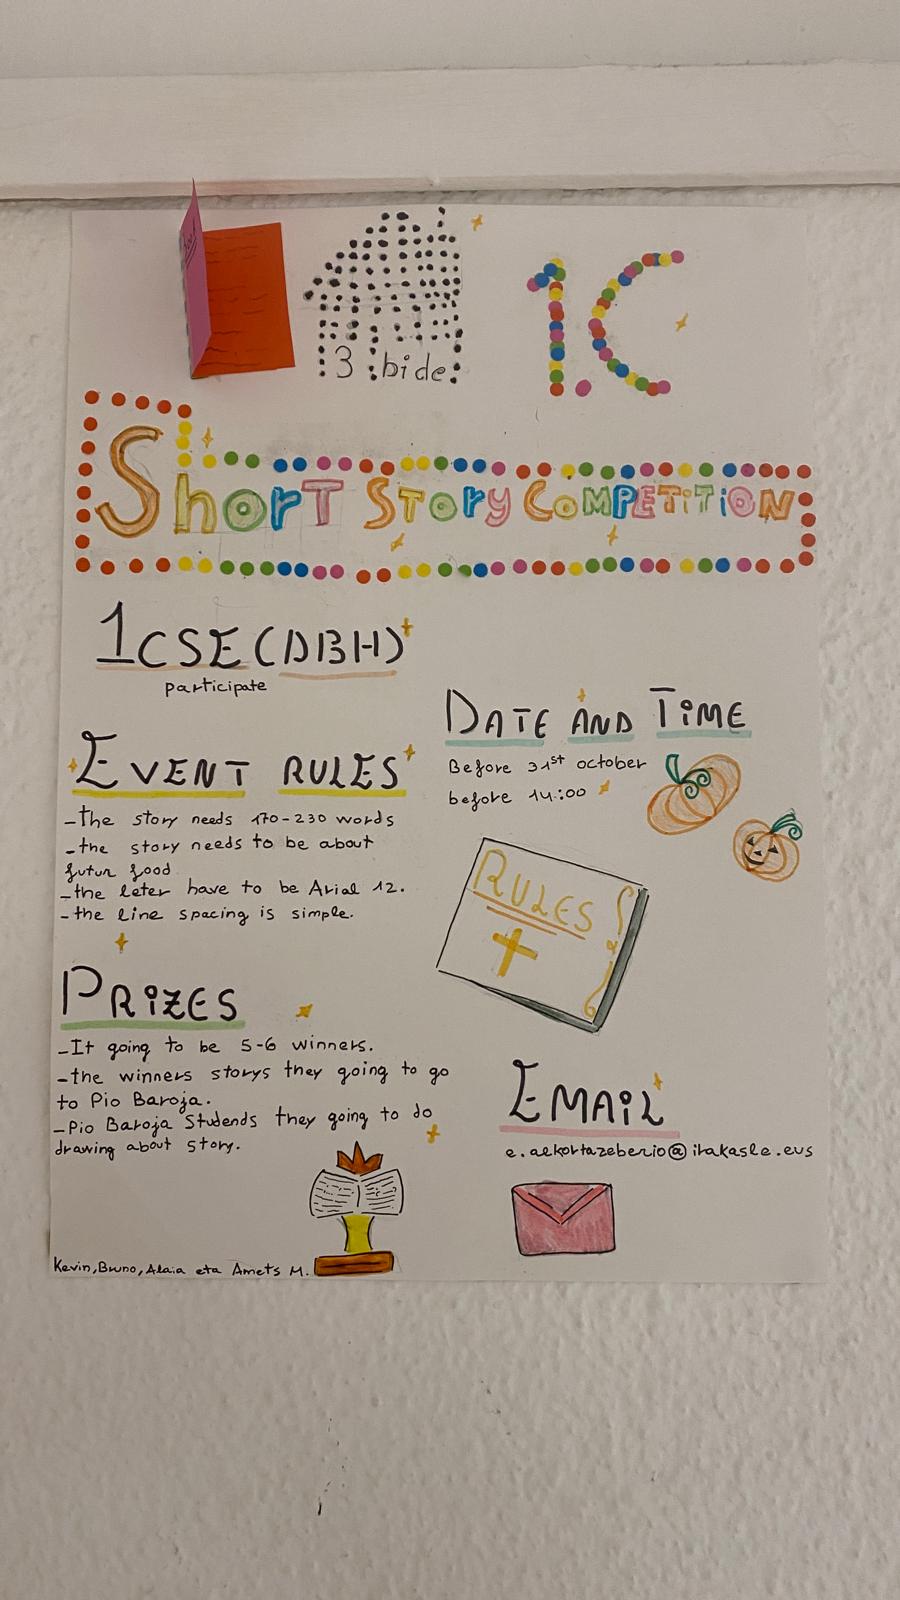 3 bide
1C
Short Story Competition
1CSE (DBH)
participate
Date and Time
Before 31st october
before 14:00
Event rules
-the story needs 170-230 words
-the story needs to be about
futur food
-the leter have to be Arial 12.
-the line spacing is simple.
Rules
Prizes
-It going to be 5-6 winners.
-the winners storys they going to go
to Pio Baroja.
-Pio Baroja Studends they going to do
drawing about story.
Email
e.aekortazeberio@irakasle.eus
Kevin, Bruno, Alaia eta Amets M.